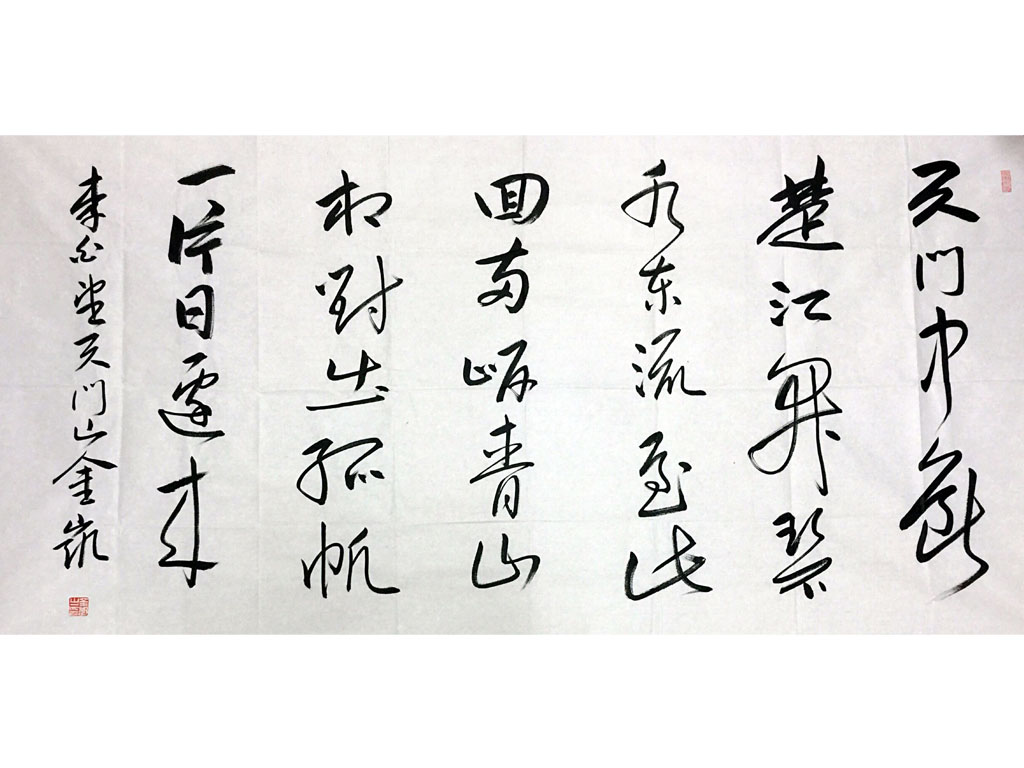 天门中斷
楚江開碧
水东流至此
回两岸青山
相對出孤帆
一片日邊来
李白望天门山金凯